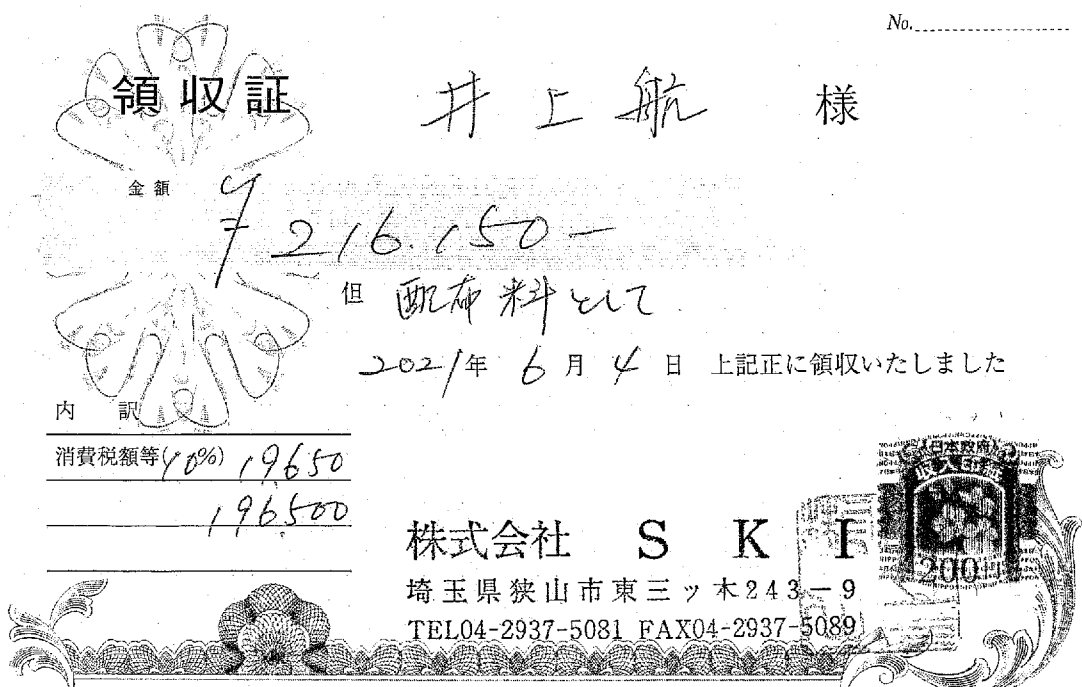 No.
領収証
井上航 様
金額 ¥216.150-
但 配布料として
2021年 6月 4日 上記正に領収いたしました
内訳
消費税額等(10%) 19650
196500
株式会社 SKI
埼玉県狭山市東三ッ木243-9
TEL04-2937-5081 FAX04-2937-5089
日本政府
収入印紙
200